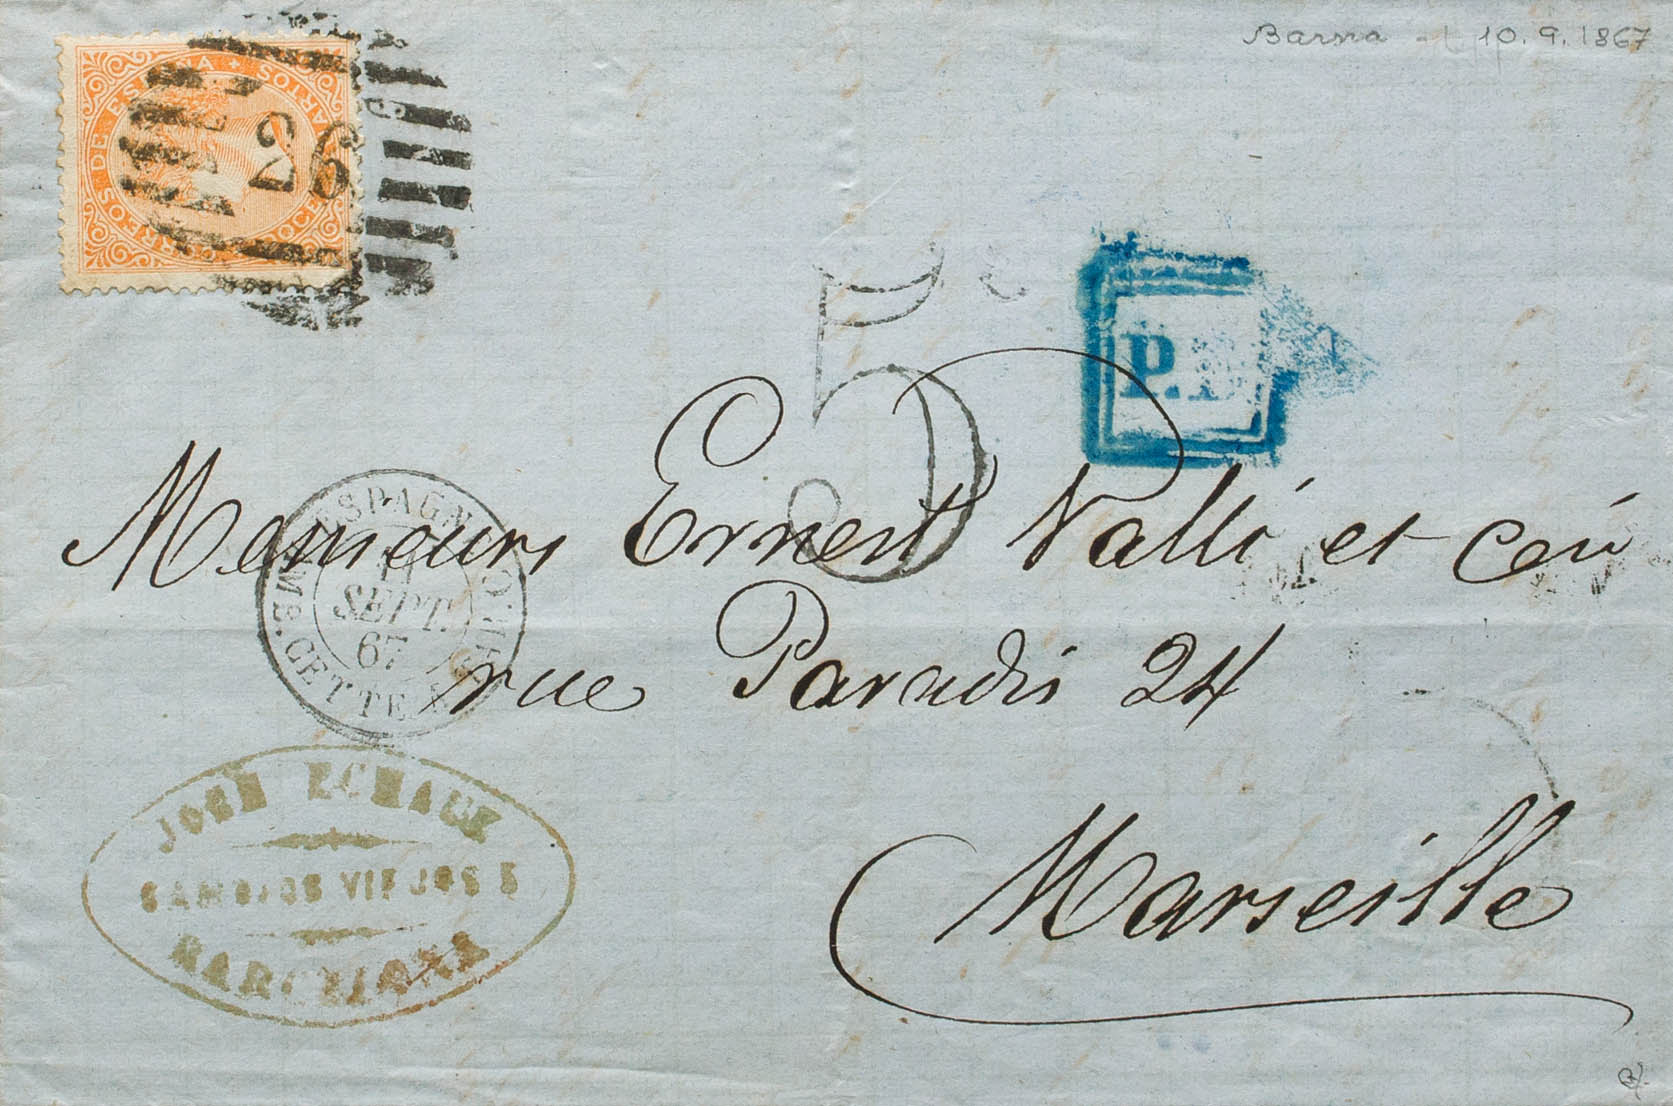 Barna 10.9.1867
CORREOS DE ESPAÑA
26
5
P.
Messieurs Ernest Valli et Cie
ESPAGNE
SEPT.
67
CETTE
rue Paradis 24
Marseille
JOHN ECHAUX
VIEJOS
BARCELONA